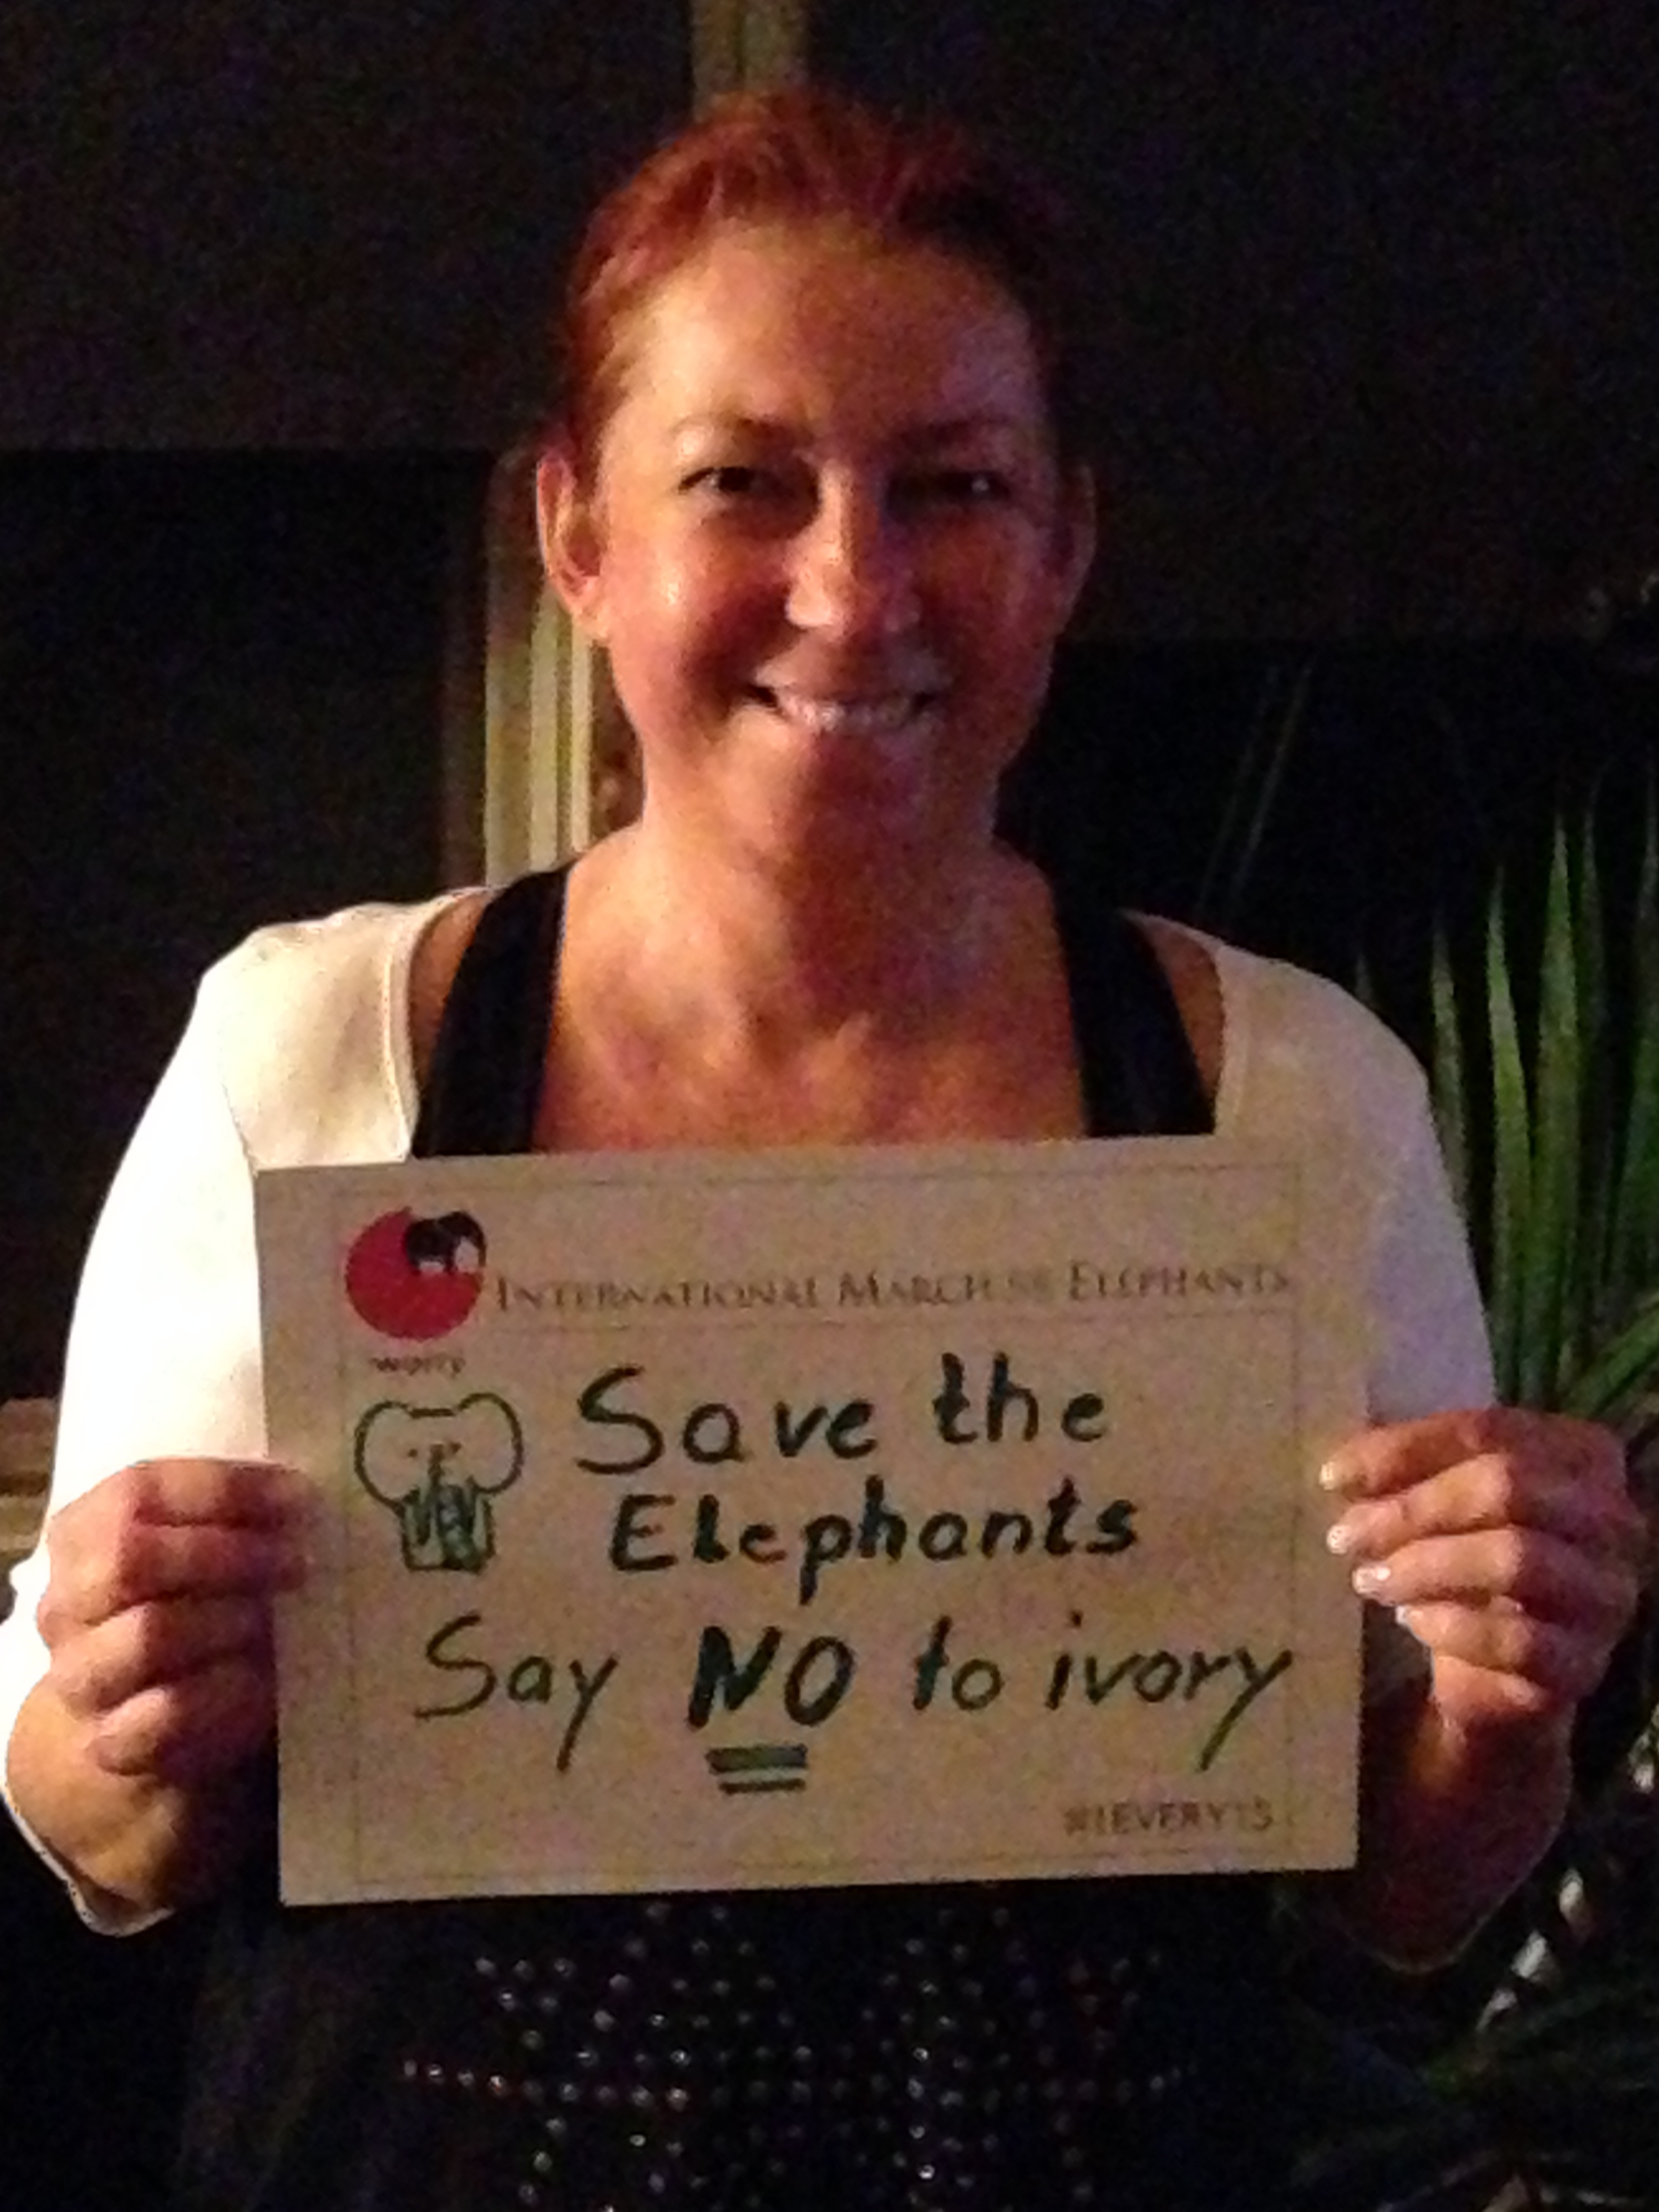 INTERNATIONAL MARCH FOR ELEPHANTS
iworry
Save the
Elephants
Say NO to ivory
#1EVERY15